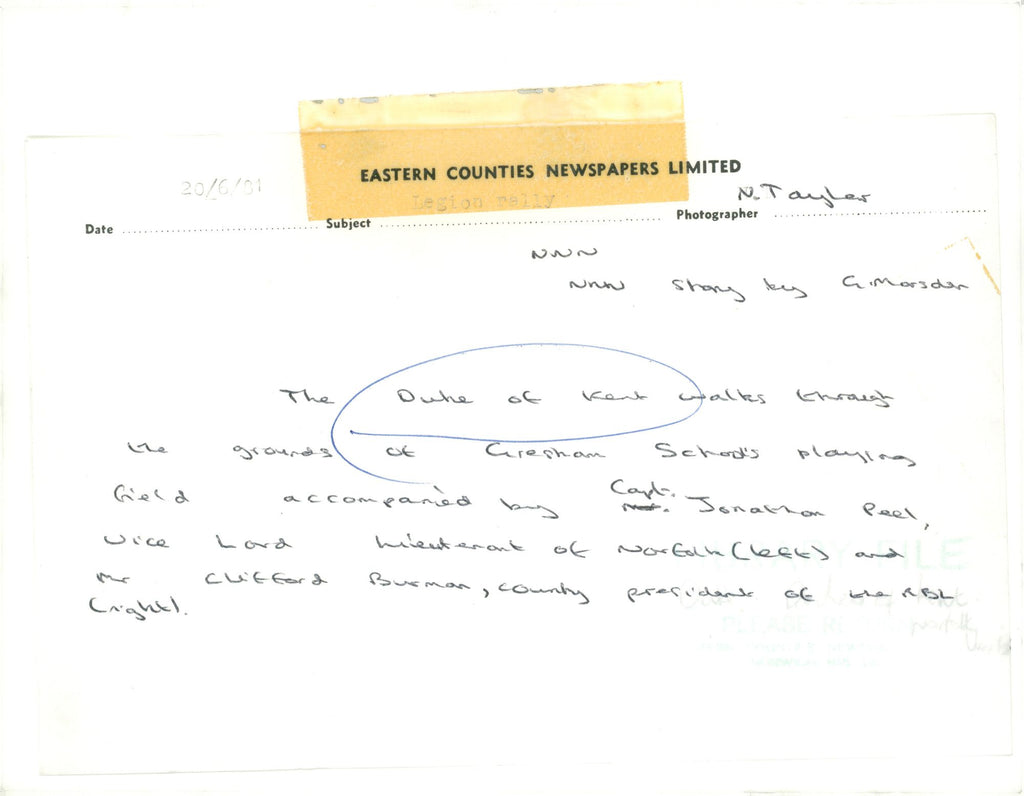 EASTERN COUNTIES NEWSPAPERS LIMITED
Date 20/6/81 Subject Legion rally Photographer N. Tayler
NNN
NNN story by G. Marsden
The Duke of Kent walks through
the grounds of Gresham School's playing
field accompanied by Capt. Jonathan Peel,
Vice Lord Lieutenant of Norfolk (left) and
Mr Clifford Burman, county president of the RBL
(right).
FILE
PLEASE